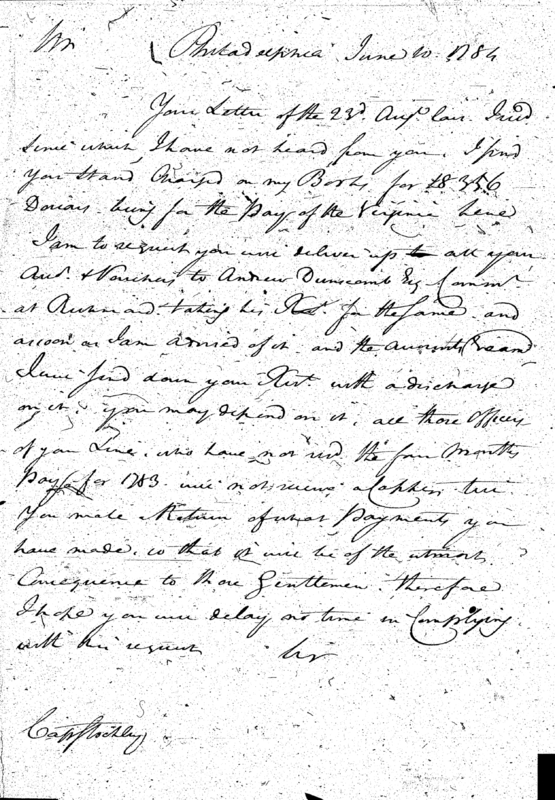 Sir Philadelphia June 10. 1784
Your Letter of the 23d. Augt. last. I recd
since which I have not heard from you. I find
you stand Charged on my Books for 18356
Dollars being for the Pay of the Virginia Line
I am to request you will deliver up to all your
& Vouchers to Andrew Dunscomb Esq Commr
at Richmond taking his Rect. for the same and
as soon as I am advised of it and the accounts
I will send down your Rect. with a discharge
on it. you may depend on it, all those Officers
of your Line, who have not recd. the four Months
Pay for 1783. will not receive a Copper till
You make a Return of what Payments you
have made, so that it will be of the utmost
Consequence to those Gentlemen. therefore
I hope you will delay no time in Complying
with this request Sir
Capt Stockley